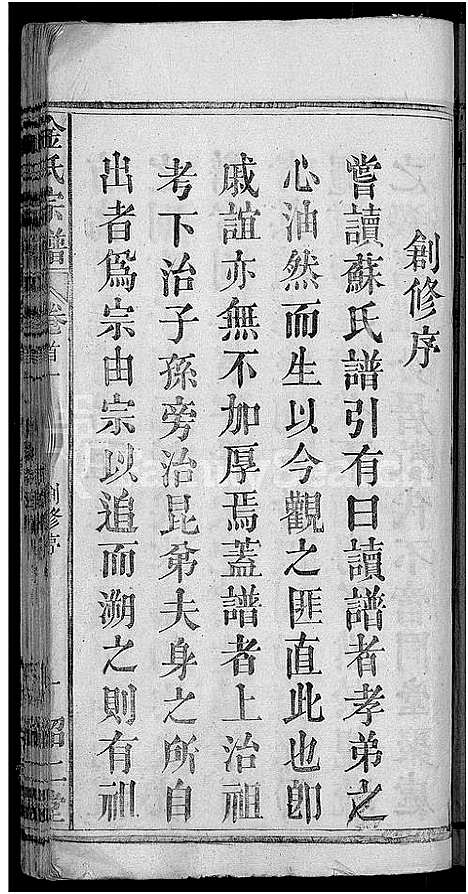 創修序
嘗讀蘇氏譜引有曰讀譜者孝弟之
心油然而生以今觀之匪直此也卽
戚誼亦無不加厚焉蓋譜者上治祖
考下治子孫旁治昆弟夫身之所自
出者爲宗由宗以追而溯之則有祖
金氏宗譜 卷首一 創修序